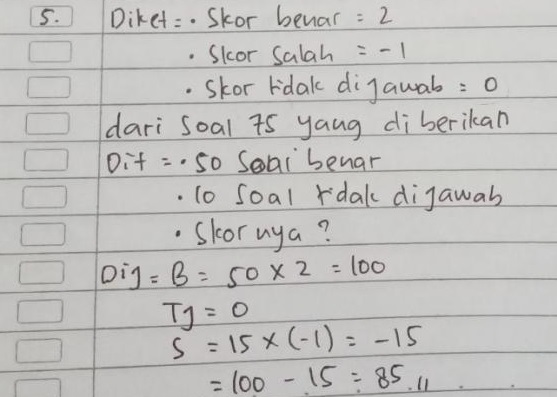 5. Diket = • Skor benar = 2
• Skor Salah = -1
• Skor tidak dijawab = 0
dari Soal 75 yang diberikan
Dit = • 50 Soal benar
• 10 Soal tidak dijawab
• Skornya ?
Dij = B = 50 x 2 = 100
Tj = 0
S = 15 x (-1) = -15
= 100 - 15 = 85 //